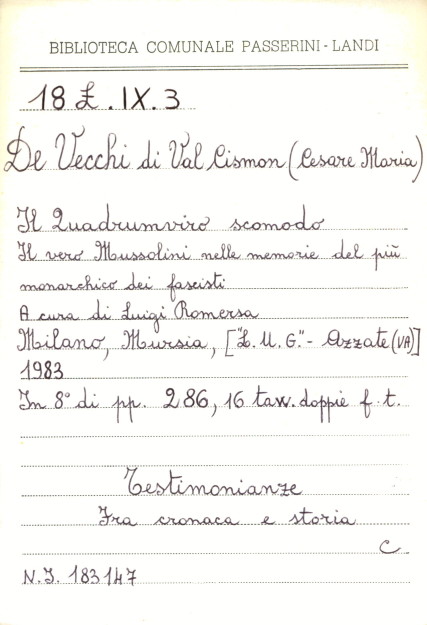 BIBLIOTECA COMUNALE PASSERINI - LANDI
18 £.IX.3
De Vecchi di Val Cismon (Cesare Maria)
Il Quadrumviro scomodo
Il vero Mussolini nelle memorie del più
monarchico dei fascisti
A cura di Luigi Romersa
Milano, Mursia, ["L. U. G." - Azzate (VA)]
1983
In 8° di pp. 286, 16 tav. doppie f. t.
Testimonianze
Fra cronaca e storia
C
N.I. 183147